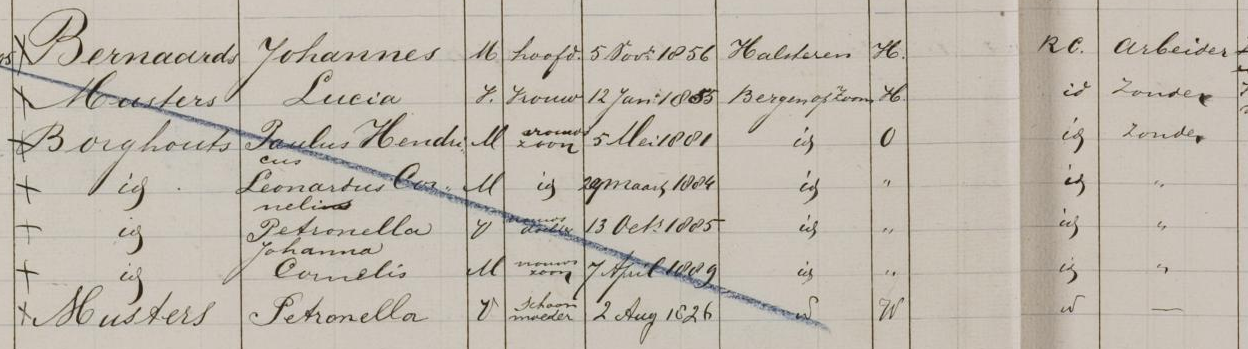 Bernaards Johannes M hoofd. 5 Nov. 1856 Halsteren H. R.C. Arbeider
Musters Lucia V. Vrouw 12 Jan. 1855 Bergen op Zoom H. id Zonder
Borghouts Paulus Hendricus M vrouws zoon 5 Mei 1881 id O id Zonder
id Leonardus Cornelius M id 29 maart 1884 id " id "
id Petronella Johanna V vrouws dochter 13 Oct. 1885 id " id "
id Cornelis M vrouws zoon 7 April 1889 id " id "
Musters Petronella V schoon moeder 2 Aug 1826 id W id —